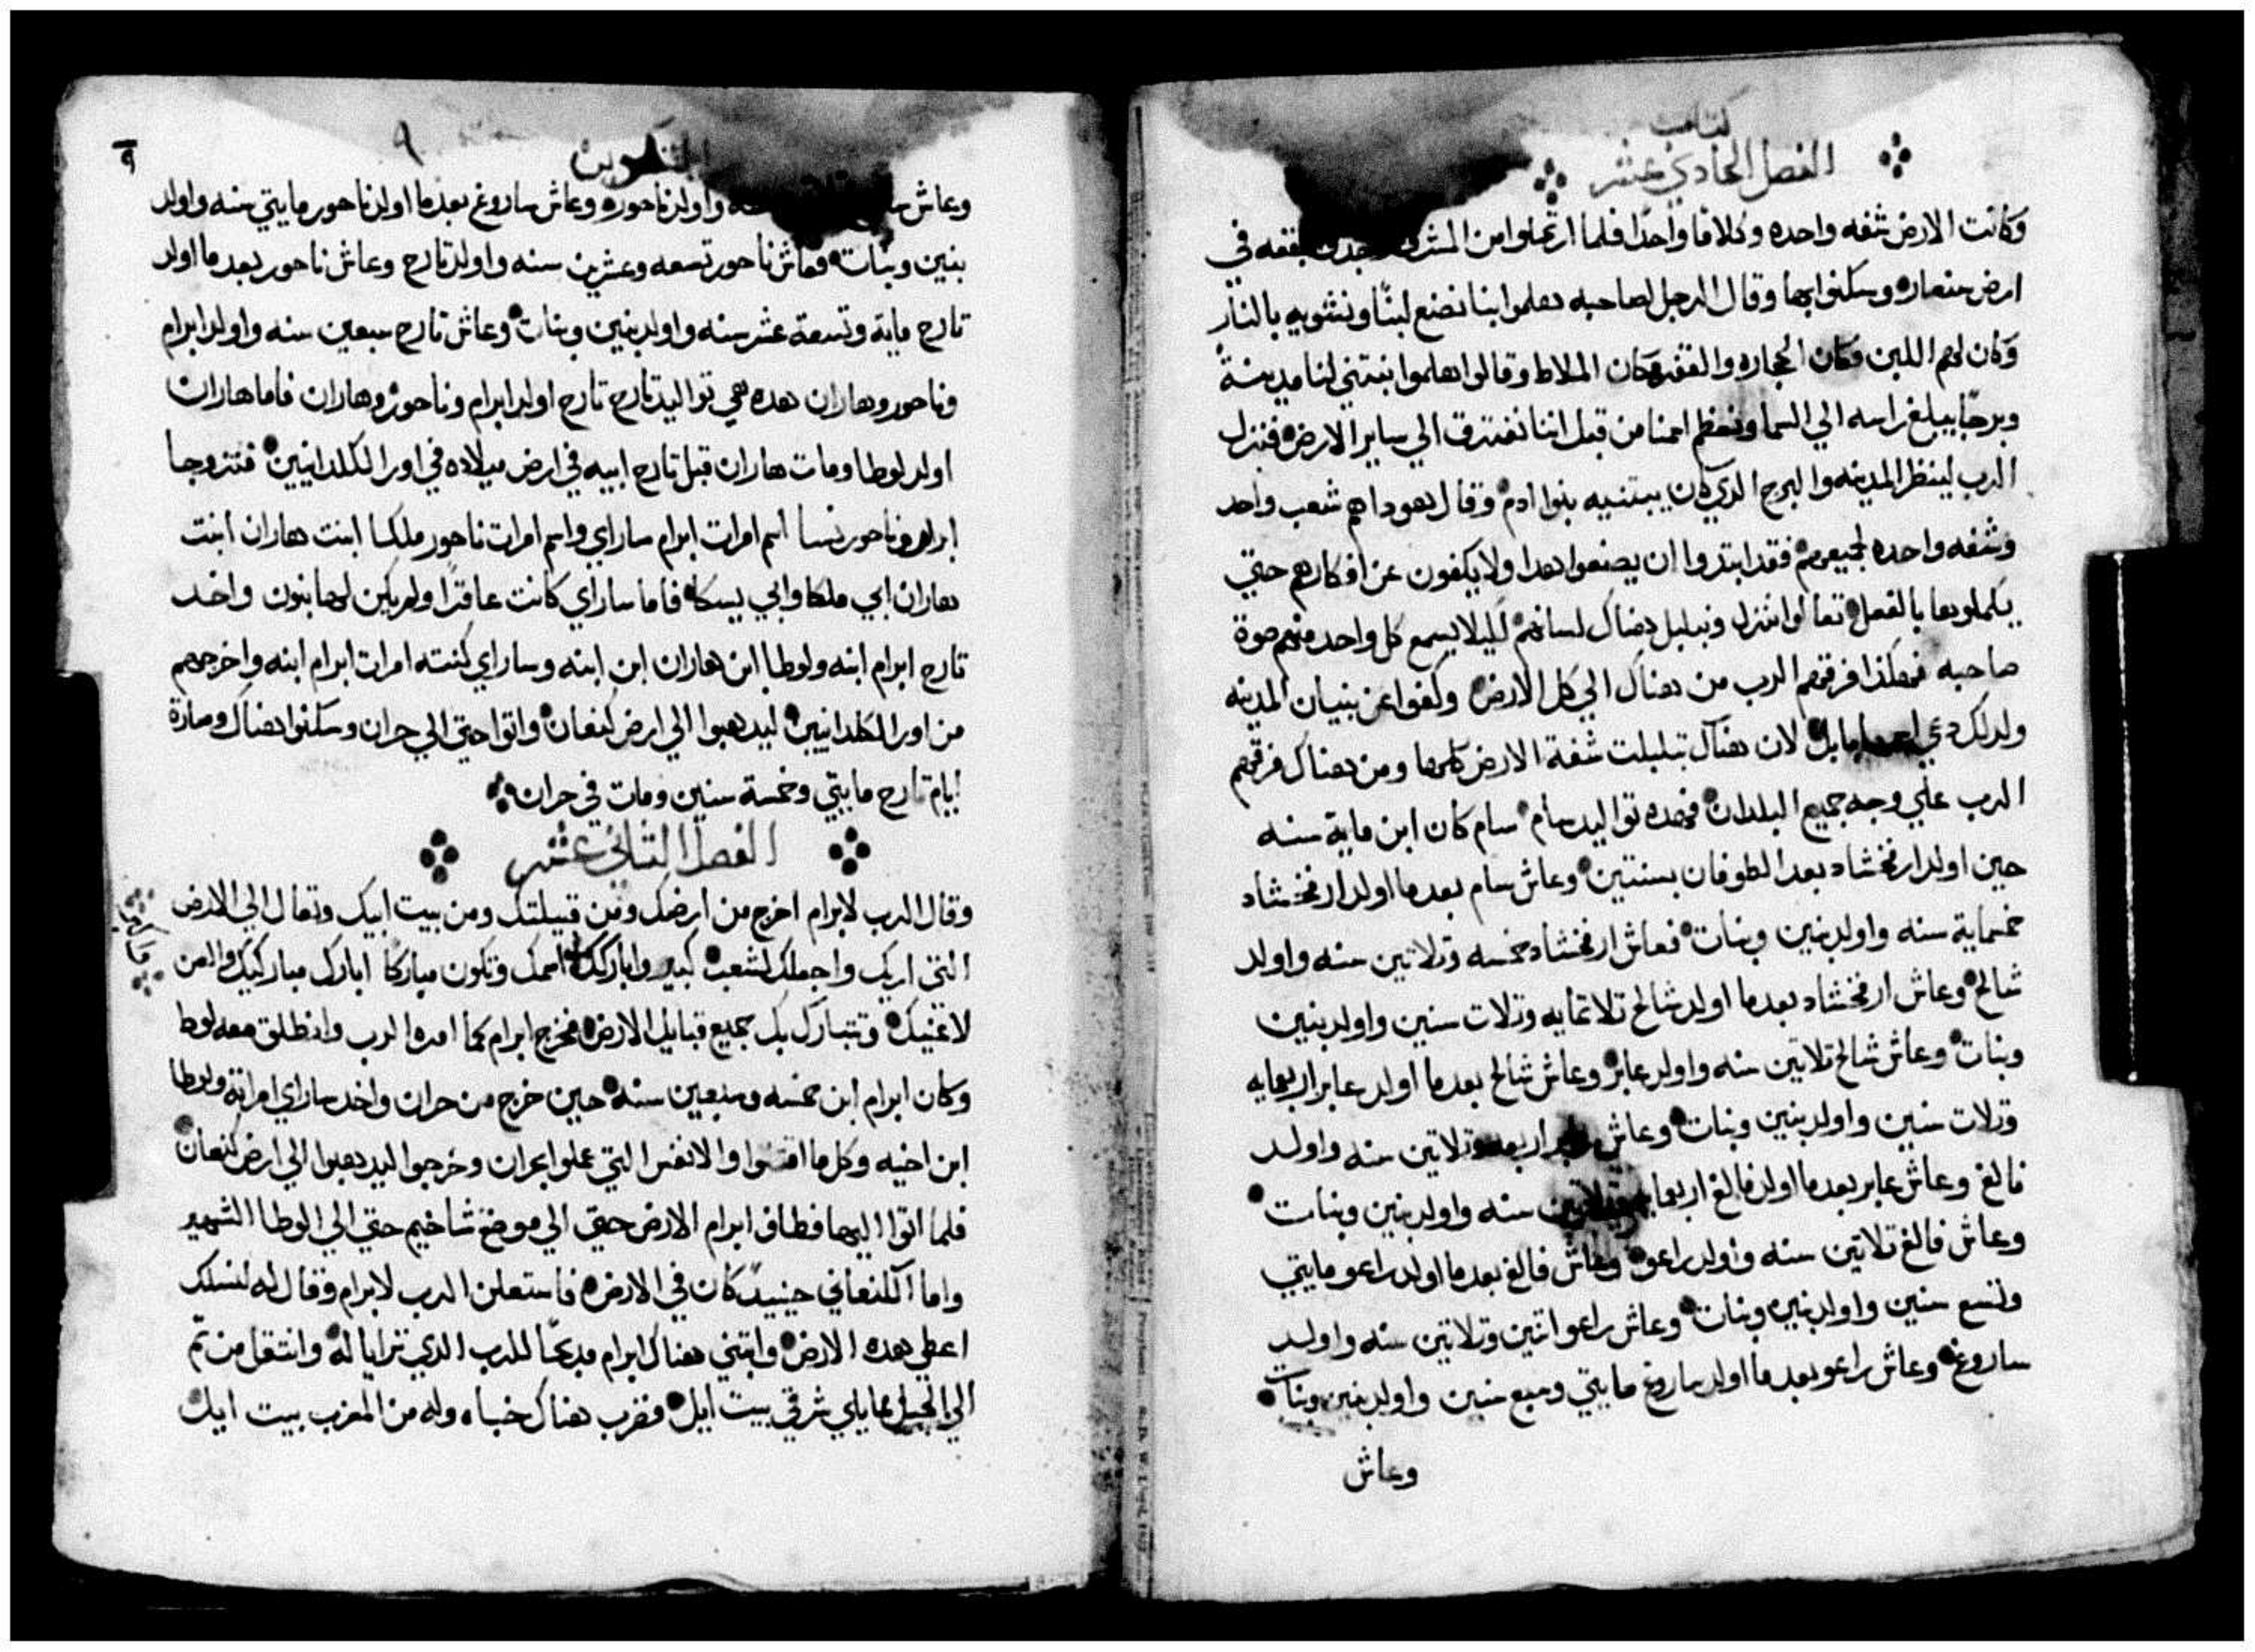 كتاب
الفصل الحادي عشر
وكانت الارض شفه واحده وكلاما واحدا فلما ارتحلوا من المشرق بقعه في
ارض سنعار وسكنوا بها وقال الرجل لصاحبه هلموا بنا نصنع لبنًا ونشويه بالنار
وكان لهم اللبن مكان الحجاره والقفر مكان الملاط وقالوا هلموا نبتني لنا مدينة
وبرجًا يبلغ راسه الي السما ونعظم اسمنا من قبل اننا نفترق الي ساير الارض فنزل
الرب لينظر المدينه والبرج الدي كان يبتنيه بنوا ادم وقال هودا هم شعب واحد
وشفه واحده لجميعهم فقد ابتدوا ان يصنعوا هدا ولا يكفون عن افكارهم حتي
يكملوها بالفعل تعالوا ننزل ونبلبل هناك لسانهم لكيلا يسمع كل واحد منهم صوة
صاحبه فهكذا فرقهم الرب من هناك الي كل الارض وكفوا عن بنيان المدينه
ولدلك دعي اسمها بابل لان هناك تبلبلت شفة الارض كلها ومن هناك فرقهم
الرب علي وجه جميع البلدان فهده تواليد سام سام كان ابن ماية سنه
حين اولد ارفخشاد بعد الطوفان بسنتين وعاش سام بعدما اولد ارفخشاد
خمسماية سنه واولد بنين وبنات فعاش ارفخشاد خمسه وتلاتين سنه واولد
شالح وعاش ارفخشاد بعدما اولد شالح تلاتمايه وتلات سنين واولد بنين
وبنات وعاش شالح تلاتين سنه واولد عابر وعاش شالح بعدما اولد عابر اربعمايه
وتلات سنين واولد بنين وبنات وعاش عابر اربعه وتلاتين سنه واولد
فالغ وعاش عابر بعدما اولد فالغ اربعمايه وتلاتين سنه واولد بنين وبنات
وعاش فالغ تلاتين سنه واولد راعو وعاش فالغ بعدما اولد راعو مايتي
وتسع سنين واولد بنين وبنات وعاش راعو اتنين وتلاتين سنه واولد
ساروغ وعاش راعو بعدما اولد ساروغ مايتي وسبع سنين واولد بنين وبنات
وعاش
٩
٩
التكوين
وعاش واولد ناحور وعاش ساروغ بعدما اولد ناحور مايتي سنه واولد
بنين وبنات فعاش ناحور تسعه وعشرين سنه واولد تارح وعاش ناحور بعدما اولد
تارح ماية وتسعة عشر سنه واولد بنين وبنات وعاش تارح سبعين سنه واولد ابرام
وناحور وهاران هده هي تواليد تارح تارح اولد ابرام وناحور وهاران فاما هاران
اولد لوطا ومات هاران قبل تارح ابيه في ارض ميلاده في اور الكلدانيين فتزوجا
ابرام وناحور نسا اسم امرات ابرام ساراي واسم امرات ناحور ملكا ابنت هاران ابنت
هاران ابي ملكا وابي يسكا فاما ساراي كانت عاقرًا ولم يكن لها بنون واخد
تارح ابرام ابنه ولوطا ابن هاران ابن ابنه وساراي كنته امرات ابرام ابنه واخرجهم
من اور الكلدانيين ليدهبوا الي ارض كنعان واتوا حتي الي حران وسكنوا هناك وصارة
ايام تارح مايتي وخمسة سنين ومات في حران
الفصل التاني عشر
وقال الرب لابرام اخرج من ارضك ومن قبيلتك ومن بيت ابيك وتعال الي الارض
التي اريك واجعلك لشعب كبير واباركك اسمك وتكون مباركًا ابارك مباركيك والعن
لاعنيك وتتبارك بك جميع قبايل الارض فخرج ابرام كما امره الرب وانطلق معه لوط
وكان ابرام ابن خمسه وسبعين سنه حين خرج من حران واخد ساراي امراته ولوطا
ابن اخيه وكل ما اقتنوا والانفس التي عملوا بحران وخرجوا ليدهبوا الي ارض كنعان
فلما اتوا اليها فطاف ابرام الارض حتي الي موضع شاخيم حتي الي الوطا الشهير
واما الكنعاني حينيد كان في الارض فاستعلن الرب لابرام وقال له لنسلك
اعطي هده الارض وابتني هناك ابرام مدبحًا للرب الدي ترايا له وانتقل من تم
الي الجبل مما يلي شرقي بيت ايل فضرب هناك خباه وله من المغرب بيت ايل